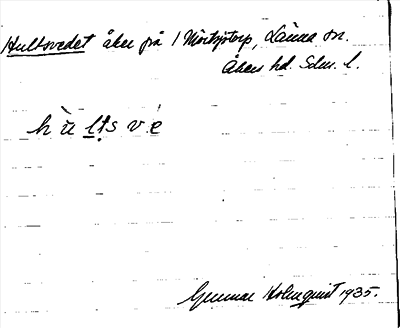 Hultsvedet åker på 1 Mörbytorp, Länna sn.
Åkers hd. Sdm. l.
hùltsvé
Gunnar Holmquist 1935.